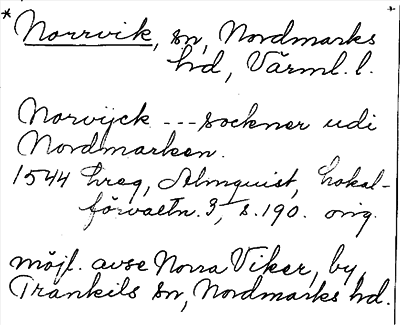 * Norrvik, sn, Nordmarks
hd, Värml. l.
Norvijck --- sockner udi
Nordmarken.
1544 hreg, Almquist, Lokal-
förvaltn. 3, s. 190. orig.
möjl. avse Norra Viker, by,
Trankils sn, Nordmarks hd.